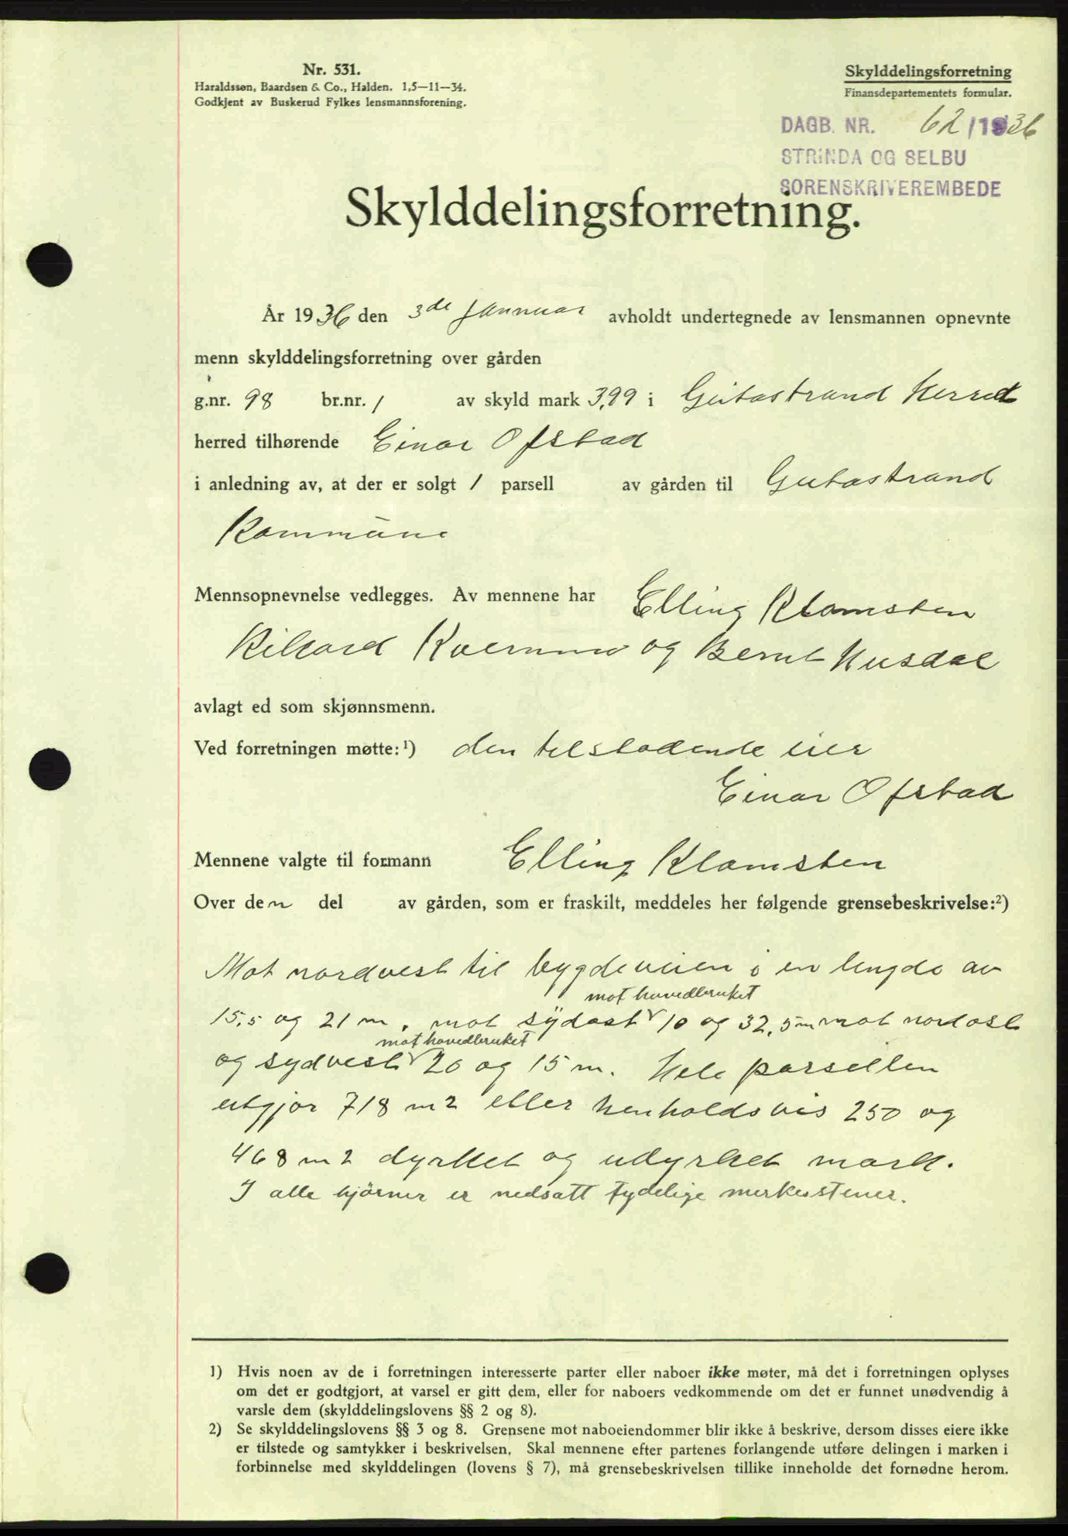 Nr. 531.
Haraldssøn, Baardsen & Co., Halden. 1,5—11—34.
Godkjent av Buskerud Fylkes lensmannsforening.
Skylddelingsforretning
Finansdepartementets formular.
DAGB. NR. 62/1936
STRINDA OG SELBU
SORENSKRIVEREMBEDE
Skylddelingsforretning.
År 1936 den 3de Januar avholdt undertegnede av lensmannen opnevnte
menn skylddelingsforretning over gården
g.nr. 98 br.nr. 1 av skyld mark 3,99 i Geitastrand Herred
herred tilhørende Einar Ofstad
i anledning av, at der er solgt 1 parsell av gården til Geitastrand
Kommune
Mennsopnevnelse vedlegges. Av mennene har Elling Klamsten
Rikard Kvernmo og Bernt Husdal
avlagt ed som skjønnsmenn.
Ved forretningen møtte:¹) den tilstødende eier
Einar Ofstad
Mennene valgte til formann Elling Klamsten
Over den del av gården, som er fraskilt, meddeles her følgende grensebeskrivelse:²)
Mot nordvest til bygdeveien i en lengde av
mot hovedbruket
15,5 og 21 m, mot sydost √ 10 og 32,5 m mot nordost
mot hovedbruket
og sydvest √ 20 og 15 m. Hele parsellen
utgjør 718 m2 eller henholdsvis 250 og
468 m2 dyrket og udyrket mark.
I alle hjörner er nedsatt tydelige merkestener.
1) Hvis noen av de i forretningen interesserte parter eller naboer ikke møter, må det i forretningen oplyses
om det er godtgjort, at varsel er gitt dem, eller for naboers vedkommende om det er funnet unødvendig å
varsle dem (skylddelingslovens §§ 2 og 8).
2) Se skylddelingslovens §§ 3 og 8. Grensene mot naboeiendommer blir ikke å beskrive, dersom disses eiere ikke
er tilstede og samtykker i beskrivelsen. Skal mennene efter partenes forlangende utføre delingen i marken i
forbinnelse med skylddelingen (lovens § 7), må grensebeskrivelsen tillike inneholde det fornødne herom.